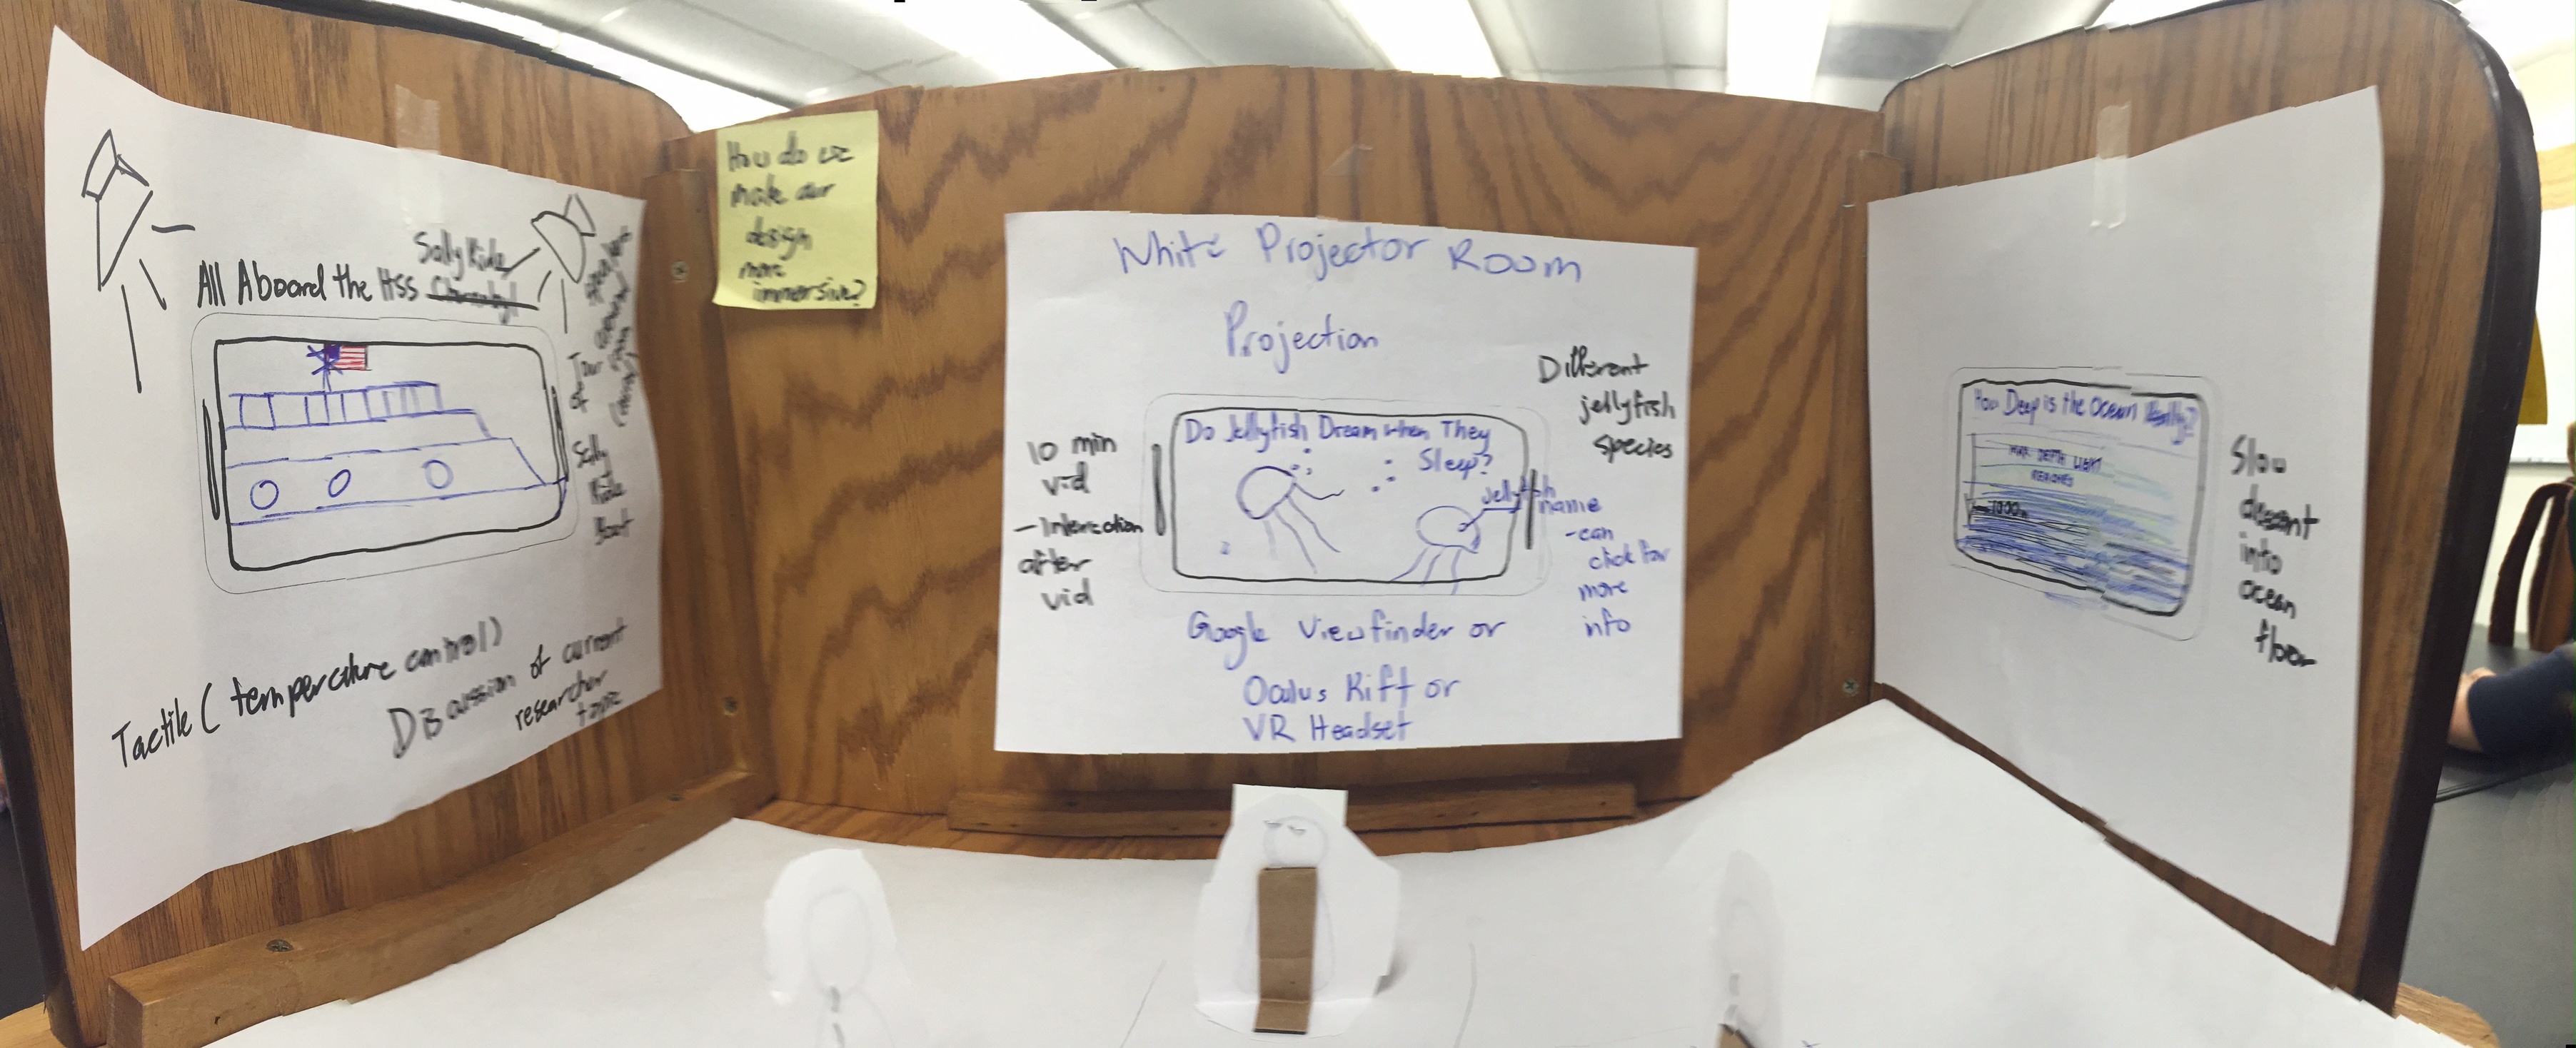 Sally Ride
All Aboard the HSS
Tour
of
Sally
Ride
Boat
Tactile (temperature control)
Discussion of current
researcher
topic
How do we
make our
design
more
immersive?
White Projector Room
Projection
10 min
vid
- Interaction
after
vid
Do Jellyfish Dream when They
Sleep?
jellyfish
name
- can
click for
more
info
Different
jellyfish
species
Google Viewfinder or
Oculus Rift or
VR Headset
How Deep is the Ocean Really?
MAX DEPTH LIGHT
REACHES
1000m
Slow
descent
into
ocean
floor